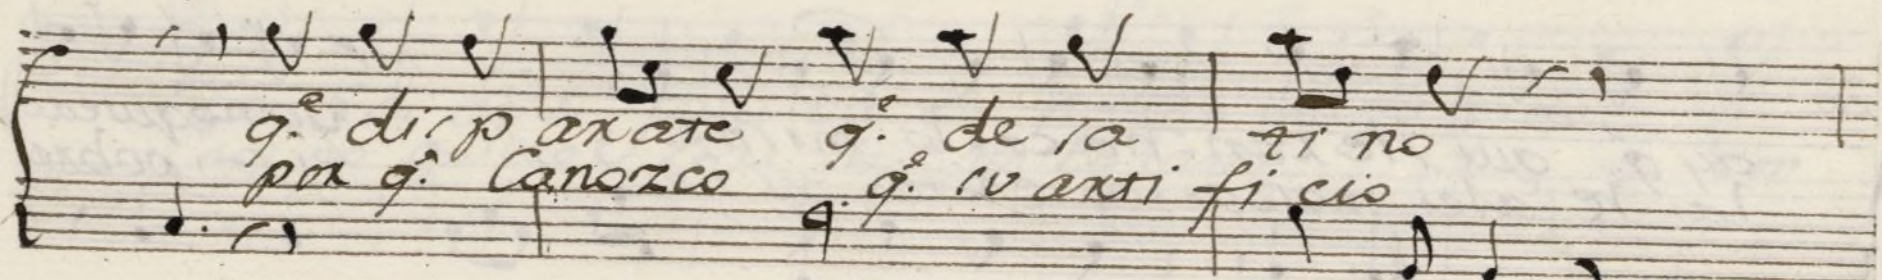 q.e disparate q.e desatino
por q.e Conozco q.e su artificio